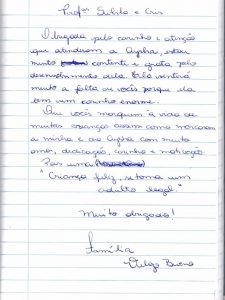 Profªs Sibila e Cris
Obrigada pelo carinho e atenção
que atenderam a Cynthia, estou
muito contente e grata pelo
desenvolvimento dela. Ela sentirá
muito a falta de vocês porque ela
tem um carinho enorme.
Que vocês marquem a vida de
muitas crianças assim como marcaram
a minha e da Cynthia com muito
amor, dedicação, carinho e motivação.
Pois uma
"Criança feliz, se torna um
adulto legal"
Muito obrigada!
Família
Bueno